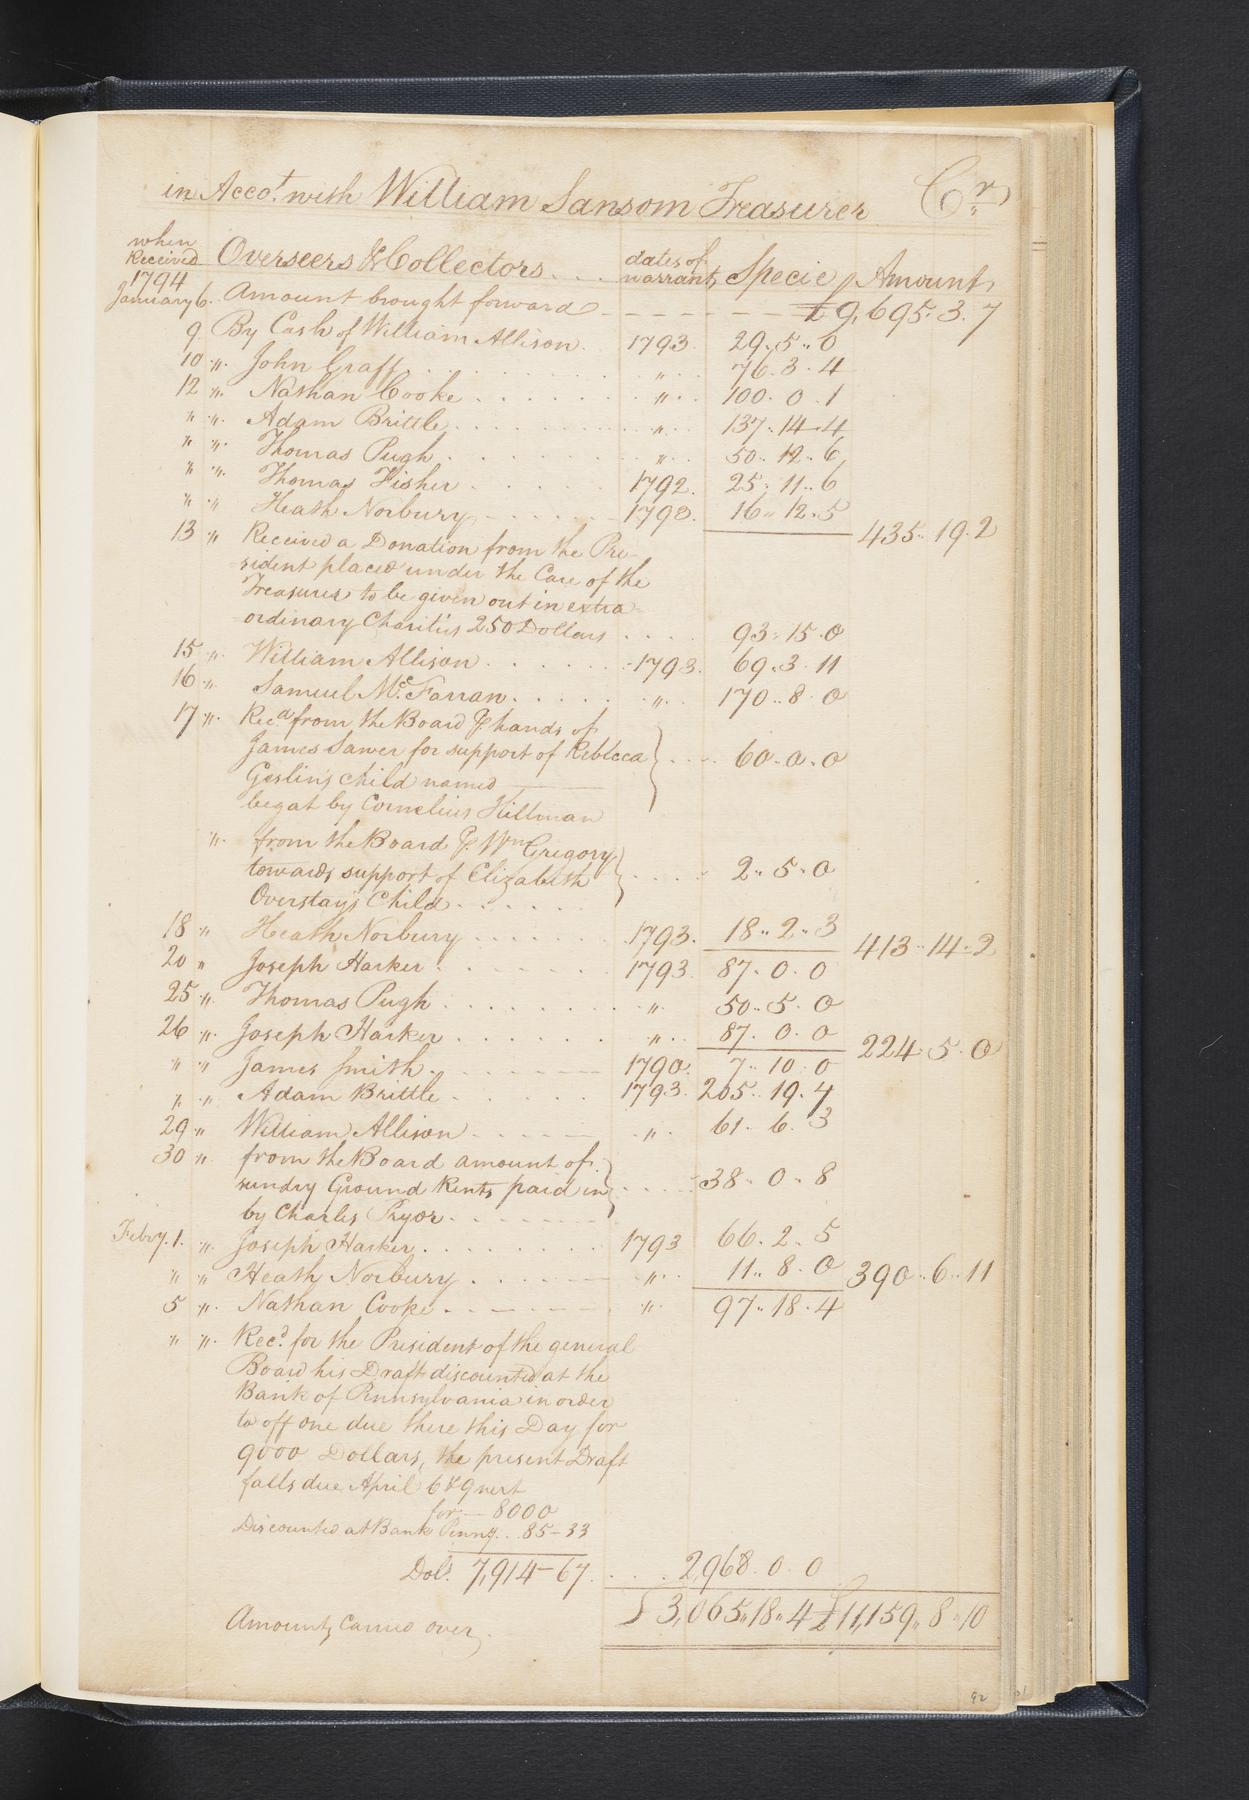 in Acco.t with William Sansom Treasurer Cr
when Received Overseers & Collectors . . . dates of warrants Specie Amount,
1794
January 6. Amount brought forward £ 9,695. 3. 7
9 By Cash of William Allison. 1793. 29. 5.. 0
10 ". John Graff . . . ".. 76. 3. 4
12 ". Nathan Cooke . . . . ".. 100. 0. 1
" ". Adam Brittle . . . . ".. 137. 14. 4
" ". Thomas Pugh . . . . ".. 50.. 12. 6
" ". Thomas Fisher . . . . 1792. 25. 11.. 6
" " Heath Norbury 1793. 16.. 12. 5 435.. 19. 2
13 " Received a Donation from the Pre-
-sident placed under the Care of the
Treasurer to be given out in extra-
-ordinary Charities 250 Dollars . . . . 93. 15. 0
15 ". William Allison . . . . 1793. 69. 3. 11
16 ". Samuel Mc. Farran . . . . ".. 170.. 8. 0
17 ". Recd from the Board p hands of
James Sawer for support of Rebecca . . . 60. 0. 0
Goslin's child named
begat by Cornelius Hillman
". from the Board p Wm Gregory
towards support of Elizabeth . . . . 2.. 5. 0
Overstay's Child . . . . .
18 " Heath Norbury . . . . 1793. 18.. 2.. 3 413.. 14. 2
20 " Joseph Harker . . . . 1793 87. 0. 0
25 ". Thomas Pugh . . . . ". 50.. 5. 0
26 ". Joseph Harker . . . . ".. 87. 0. 0 224. 5. 0
" " James Smith. 1790. 7.. 10. 0
". ". Adam Brittle . . . . 1793. 205.. 19. 4
29 " William Allison . . . . ". 61. 6. 3
30 ". from the Board amount of
sundry Ground Rents paid in . . . . 38. 0. 8
by Charles Pryor . . . .
Febry. 1. ". Joseph Harker . . . . 1793 66. 2. 5
" " Heath Norbury . . . . ".. 11.. 8. 0 390.. 6.. 11
5 ". Nathan Cooke . . . . ". 97.. 18. 4
" ". Recd. for the President of the general
Board his Draft discounted at the
Bank of Pennsylvania in order
to off one due there this Day for
9000 Dollars, the present Draft
falls due April 6 & 9 next
for — 8000
Discounted at Bank Penny. . 85-33
Dols. 7,914-67. . . . 2,968. 0. 0
£ 3,065.. 18.. 4 £ 11,159.. 8.. 10
Amounts carried over
92